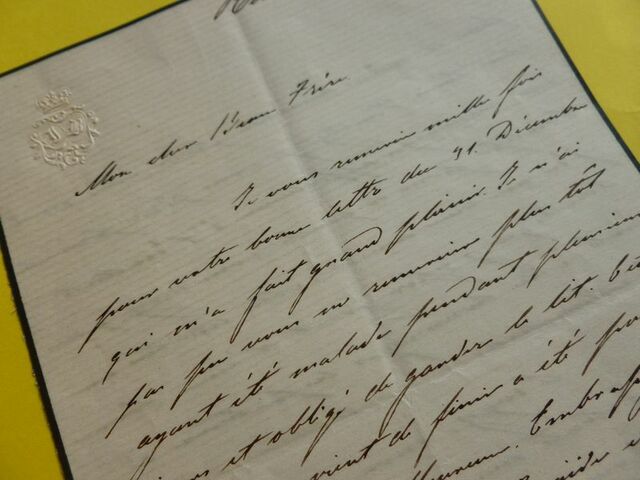 Mon cher Beau Frère
Je vous remercie mille fois
pour votre bonne lettre du 31. Décembre
qui m'a fait grand plaisir. Je n'ai
pas pu vous en remercier plus tôt
ayant été malade pendant plusieurs
et obligé de garder le lit.
vient de finir a été
Embrass